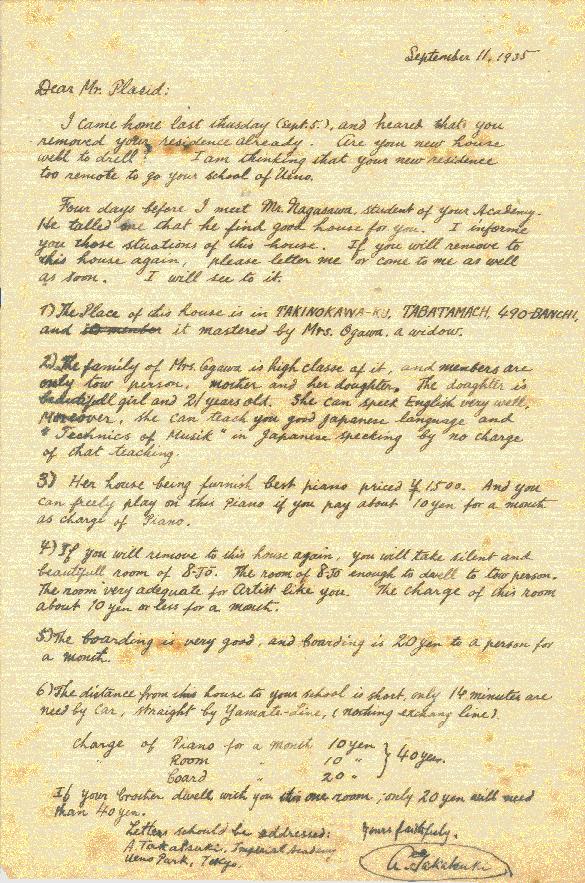 September 11, 1935
Dear Mr. Plasid:
I came home last thusday (Sept. 5.), and heared that you
removed your residence already. Are you new house
well to drill? I am thinking that your new residence
too remote to go your school of Ueno.
Four days before I meet Mr. Nagasawa, student of your Academy.
He talled me that he find good house for you. I informe
you those stuations of this house. If you will remove to
this house again, please letter me or come to me as well
as soon. I will see to it.
1) The Place of this house is in TAKINOKAWA-KU, TABATAMACH, 490-BANCHI,
and its member it mastered by Mrs. Ogawa, a widow.
2) The family of Mrs. Ogawa is high classe of it, and members are
only tow person, mother and her doughter. The doaghter is
beautifull girl and 21 years old. She can speek English very well,
Moreover, she can teach you good Japanese language and
"Technics of Musik" in Japanese specking by no charge
of that teaching.
3) Her house being furnish best piano priced ¥ 1500. And you
can freely play on this Piano if you pay about 10 yen for a month
as charge of Piano.
4) If you will remove to this house again, you will take silent and
beautifull room of 8-JO. The room of 8-JO enough to dwell to tow person.
The room very adequate for Artist like you. The charge of this room
about 10 yen or less for a month.
5) The boarding is very good, and boarding is 20 yen to a person for
a month.
6) The distance from this house to your school is short, only 14 minutes are
need by car, straight by Yamate-Line, (nothing exchang line).
Charge of Piano for a month 10 yen
Room " 10 " } 40 yen.
Board " 20 "
If your brother dwell with you in one room, only 20 yen will need
than 40 yen.
Letters schould be addressed: Yours faithfuly,
A. Takatsuki, Imperial Academy
Ueno Park, Tokyo. A. Takatsuki